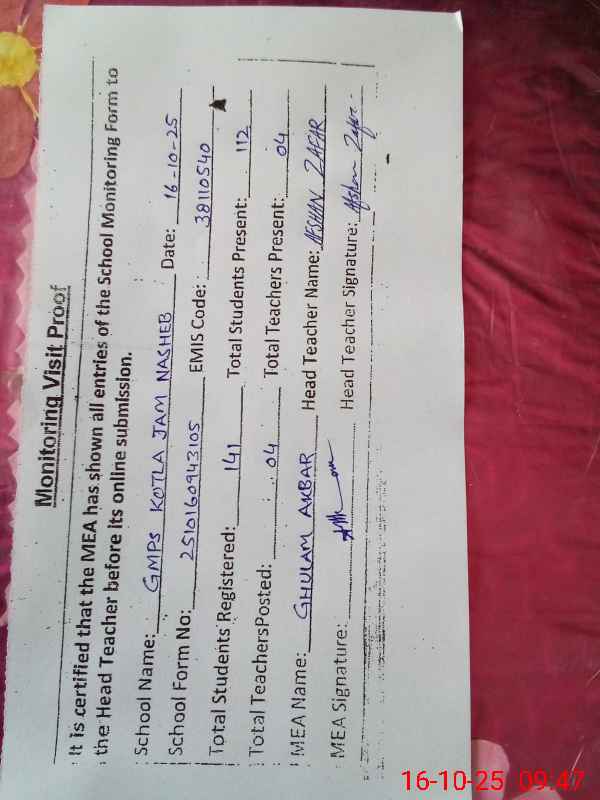 Monitoring Visit Proof
It is certified that the MEA has shown all entries of the School Monitoring Form to
the Head Teacher before its online submission.
School Name: GMPS KOTLA JAM NASHEB Date: 16-10-25
School Form No: 2510160943105 EMIS Code: 38110540
Total Students Registered: 141 Total Students Present: 112
Total TeachersPosted: 04 Total Teachers Present: 04
MEA Name: GHULAM AKBAR Head Teacher Name: AFSHAN ZAFAR
MEA Signature: Head Teacher Signature: Afshan Zafar
16-10-25 09:47